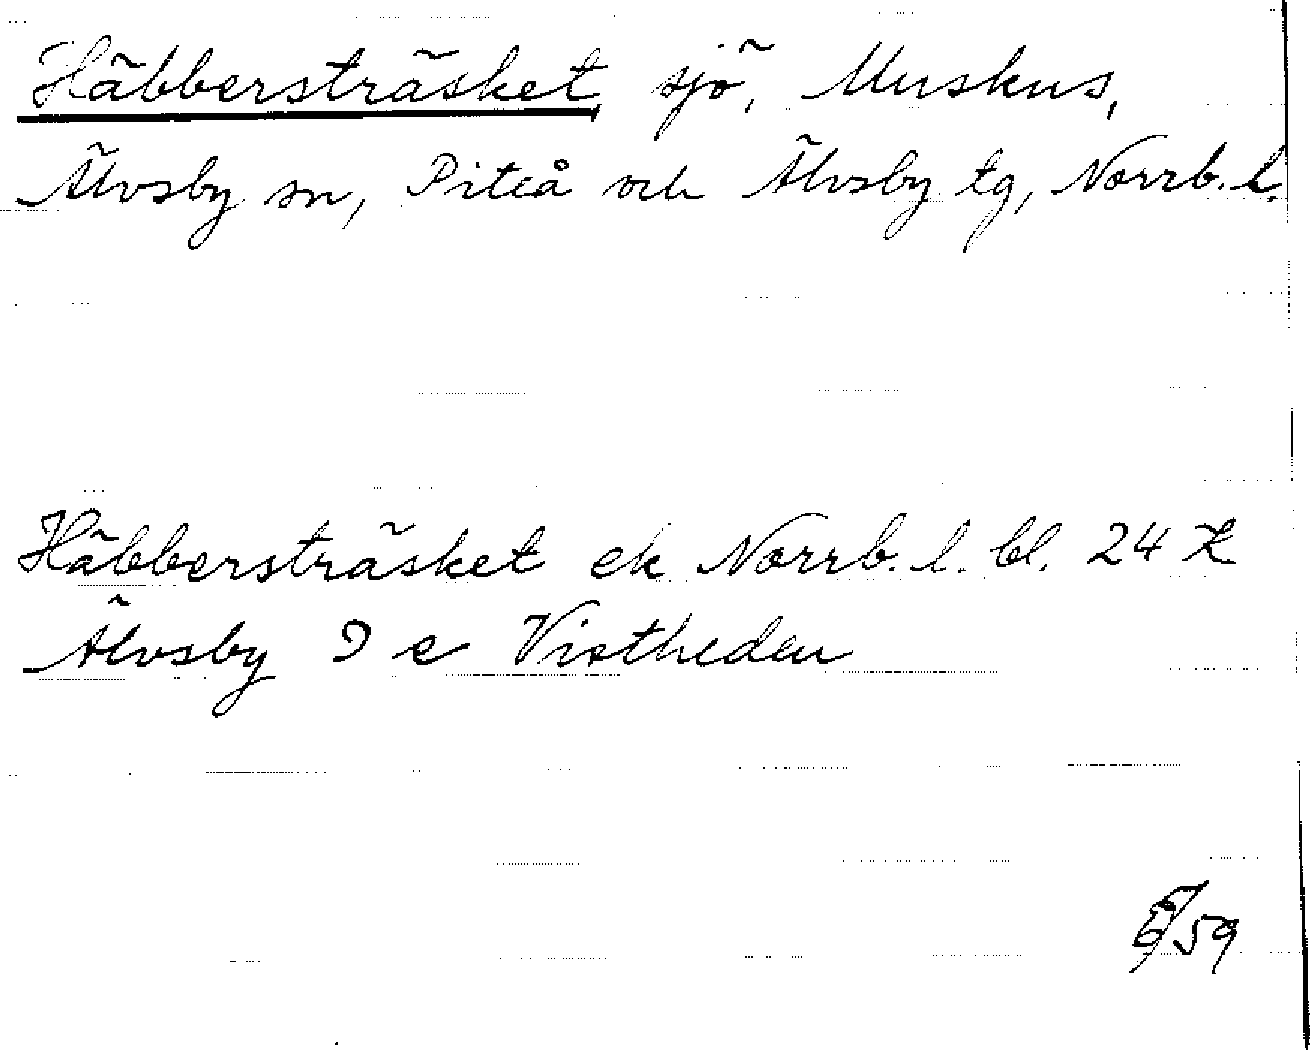 Häbbersträsket, sjö, Muskus,
Älvsby sn, Piteå och Älvsby tg, Norrb. l.
Häbbersträsket ek Norrb. l. bl. 24 K
Älvsby 9 e Vistheden
59